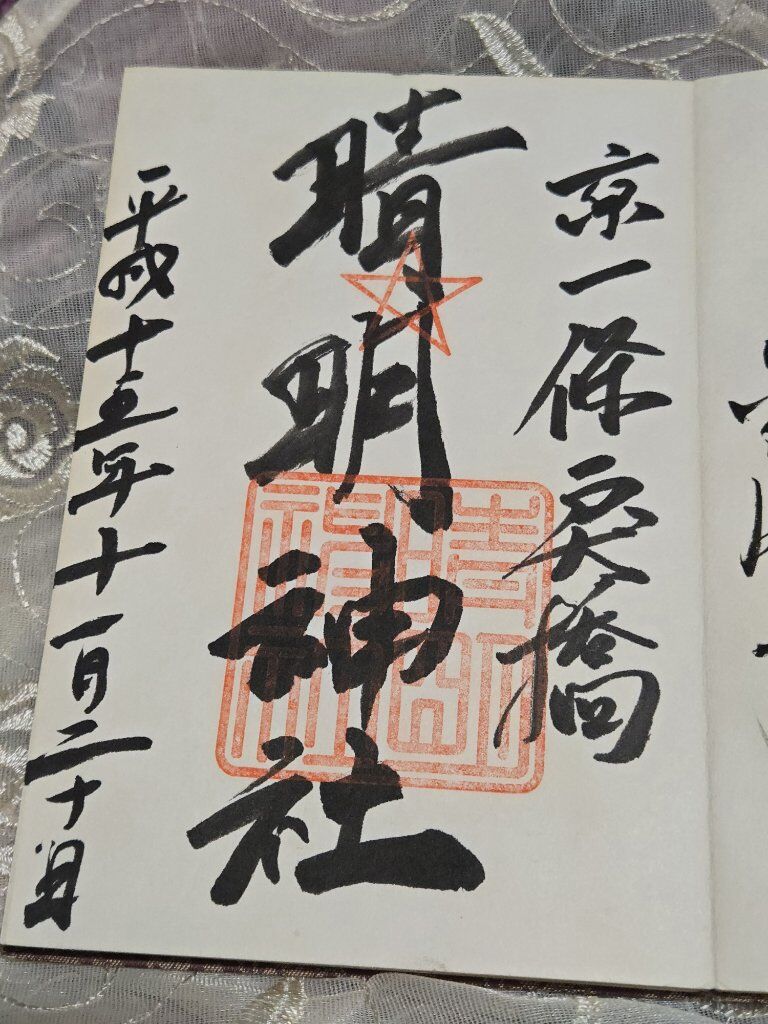 京一條戻橋
晴明神社
晴明神社
平成十五年十一月二十日